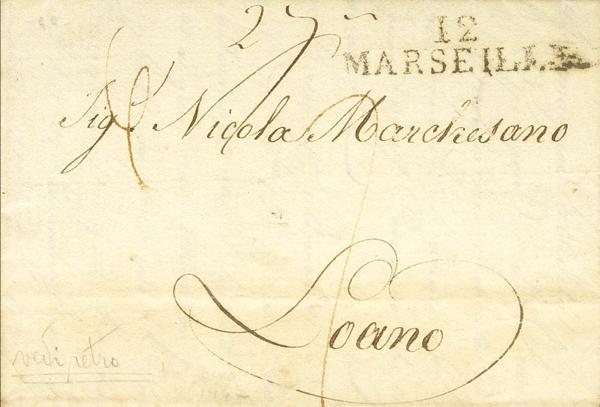 27
12
MARSEILLE
Sigr. Nicola Marchesano
Loano
vedi retro